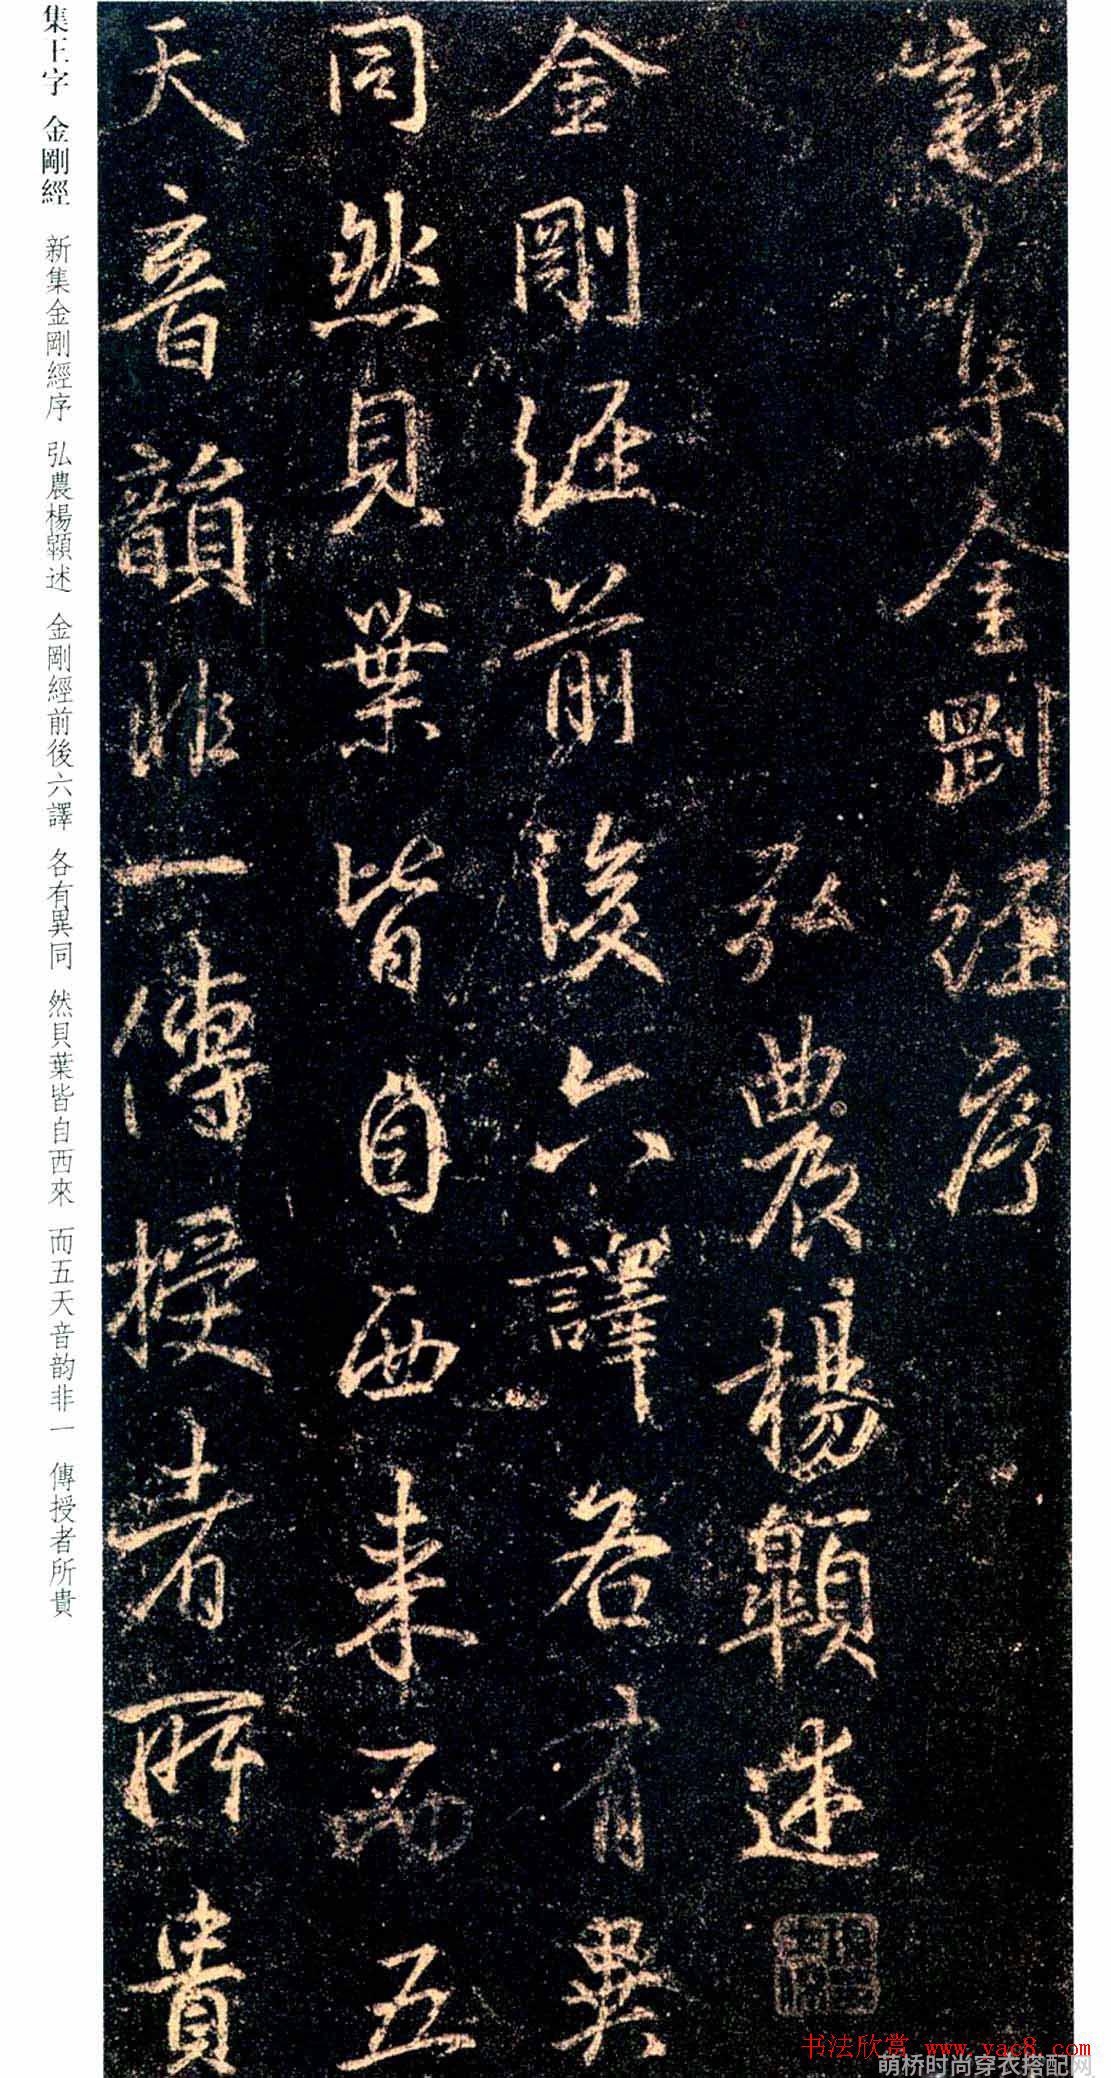 新集金剛經序
弘農楊顗述
金剛經前後六譯各有異
同然貝葉皆自西来而五
天音韻非一傳授者所貴
集王字 金剛經 新集金剛經序 弘農楊顗述 金剛經前後六譯 各有異同 然貝葉皆自西來 而五天音韵非一 傳授者所貴
书法欣赏 www.yac8.com
萌桥时尚穿衣搭配网